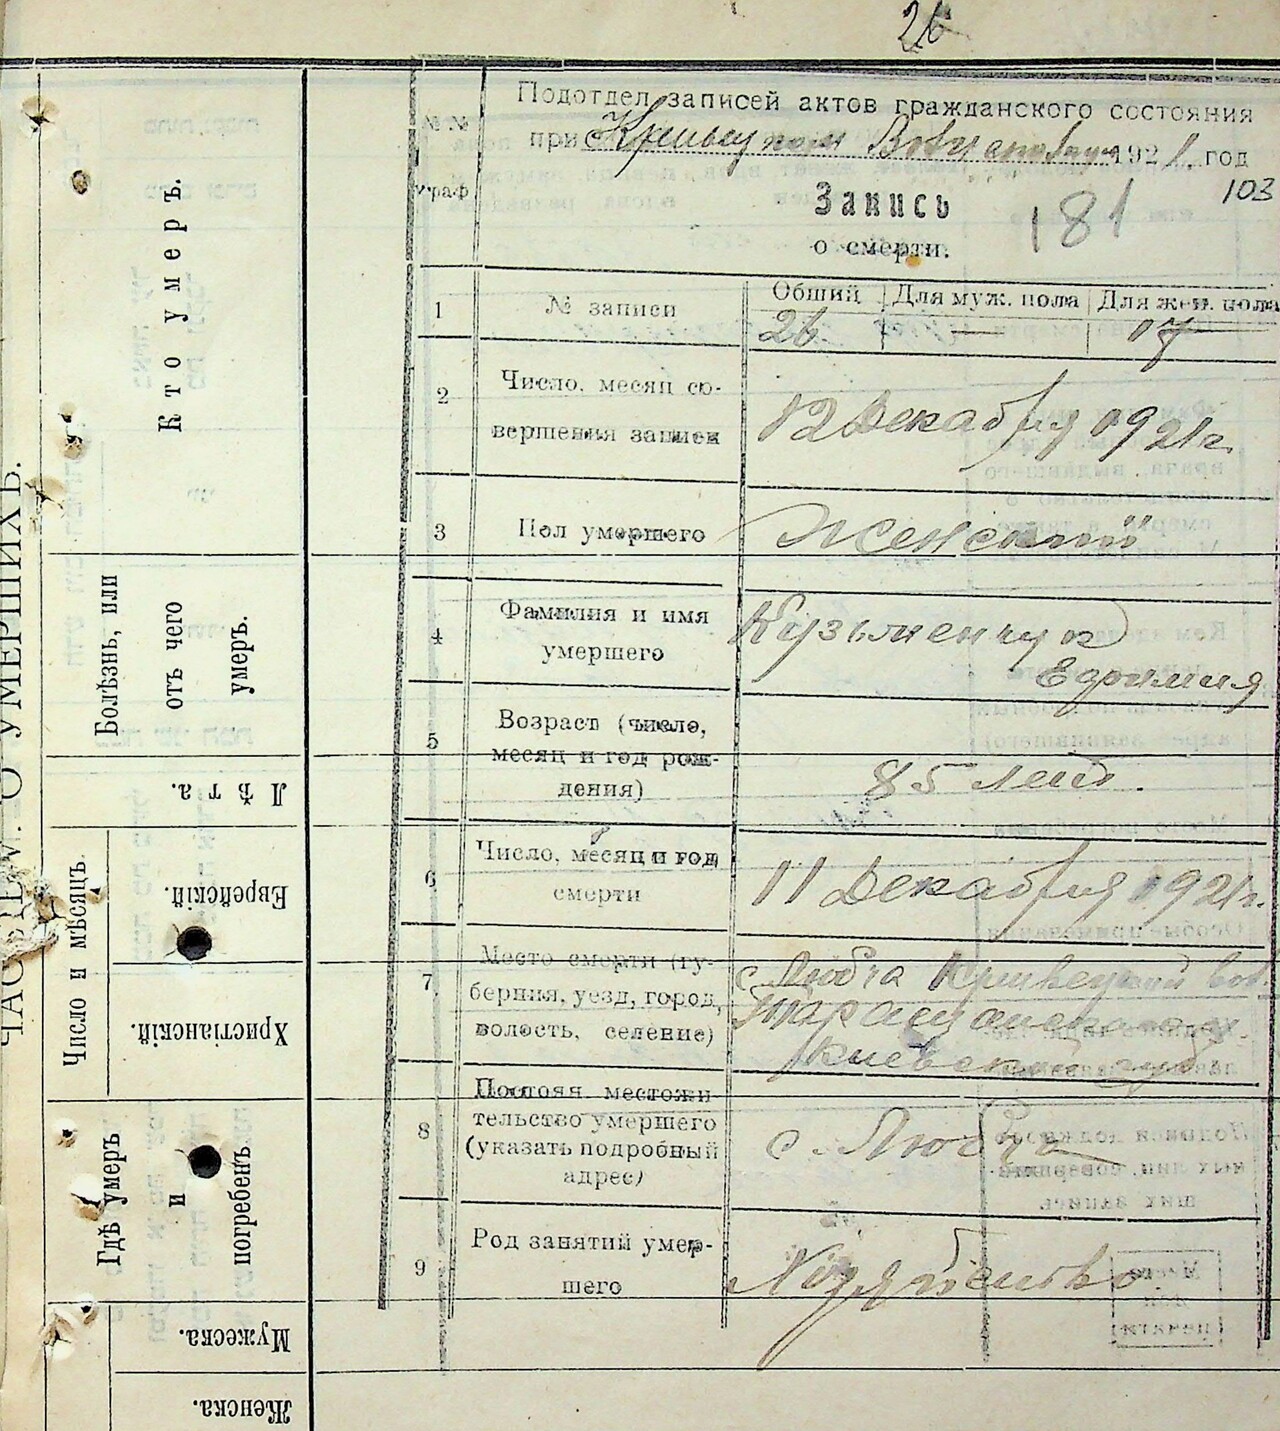 26
Подотдел записей актов гражданского состояния
при 1921 год
103
Запись
181
о смерти.
№.№
граф
1
№ записи
Общий
Для муж. пола
Для жен. пола
26
—
17
2
Число, месяц со-
вершения записи
12 Декабря 1921 г.
3
Пол умершего
Женский
4
Фамилия и имя
умершего
Кузьменчук
5
Возраст (число,
месяц и год рож-
дения)
85 лет.
6
Число, месяц и год
смерти
11 Декабря 1921 г.
7
Место смерти (гу-
берния, уезд, город,
волость, селение)
с. Любча Кривецкой вол.
Киевской губ
8
Постоян. местожи
тельство умершего
(указать подробный
адрес)
с. Любча
9
Род занятий умер-
шего
О УМЕРШИХЪ.
Кто умеръ.
Болѣзнь, или
отъ чего
умеръ.
Лѣта.
Число и мѣсяцъ.
Еврейскій.
Христіанскій.
Гдѣ умеръ
и
погребенъ
Мужеска.
Женска.